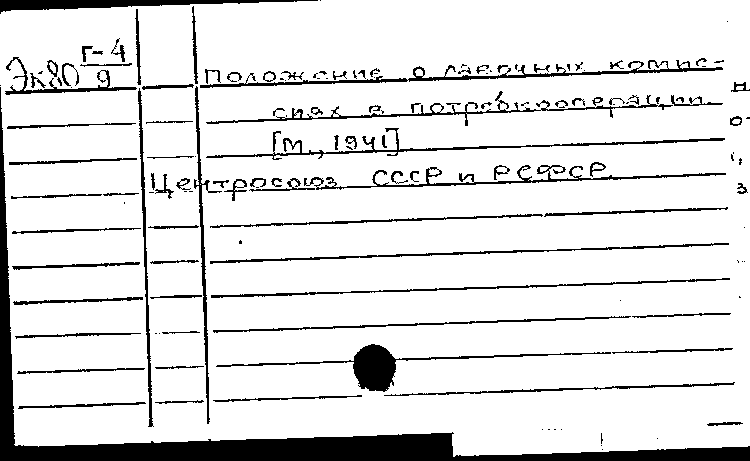 Эк80 Г-4/9
Положение о лавочных комис-
сиях в потребкооперации.
[М., 1941]
Центросоюз СССР и РСФСР.